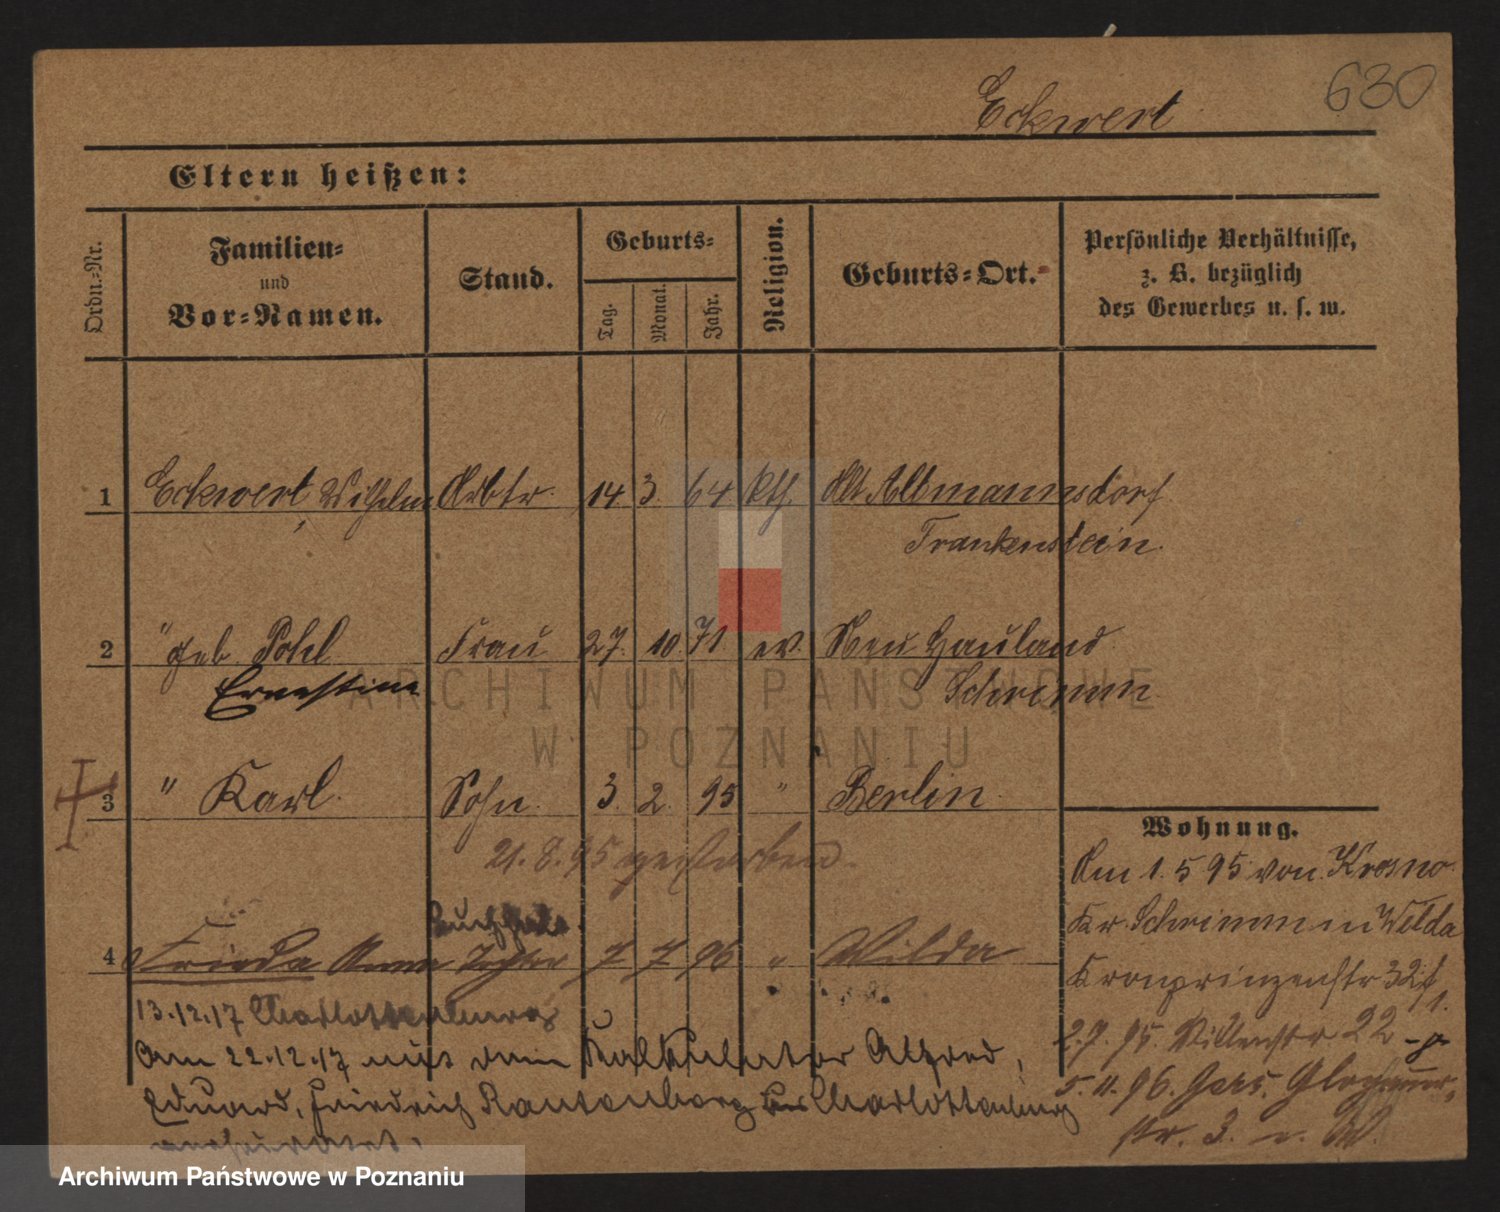 630
Eckwert
Eltern heißen:
Ordn.-Nr.
Familien-
und
Vor-Namen.
Stand.
Geburts-
Tag.
Monat.
Jahr.
Religion.
Geburts-Ort.
Persönliche Verhältnisse,
z. B. bezüglich
des Gewerbes u. s. w.
1 Eckwert Wilhelm Arbtr. 14 3. 64 kth. Alt Altmannsdorf
Frankenstein.
2 " geb Pohl Frau 27. 10. 71 ev. Neu Hauland
Ernestine Schrimm
ARCHIWUM PAŃSTWOWE
W POZNANIU
3 " Karl. Sohn. 3. 2. 95 " Berlin
21. 8. 95 gestorben.
Wohnung.
Am 1. 5 95 von Krosno
Kr. Schrimm in Wilda
Buchhalt.
4 Frieda Anna Tochter 7 7 96 " Wilda
Kronprinzenstr 32 f
1.
13.12.17 Charlottenburg
2.7.95. 22
Am 22.12.17 mit dem Alfred,
5.11.96. Gers. Glogauer-
Eduard, Friedrich Rautenberg aus Charlottenburg
str. 3. v. W.
verheiratet.
Archiwum Państwowe w Poznaniu